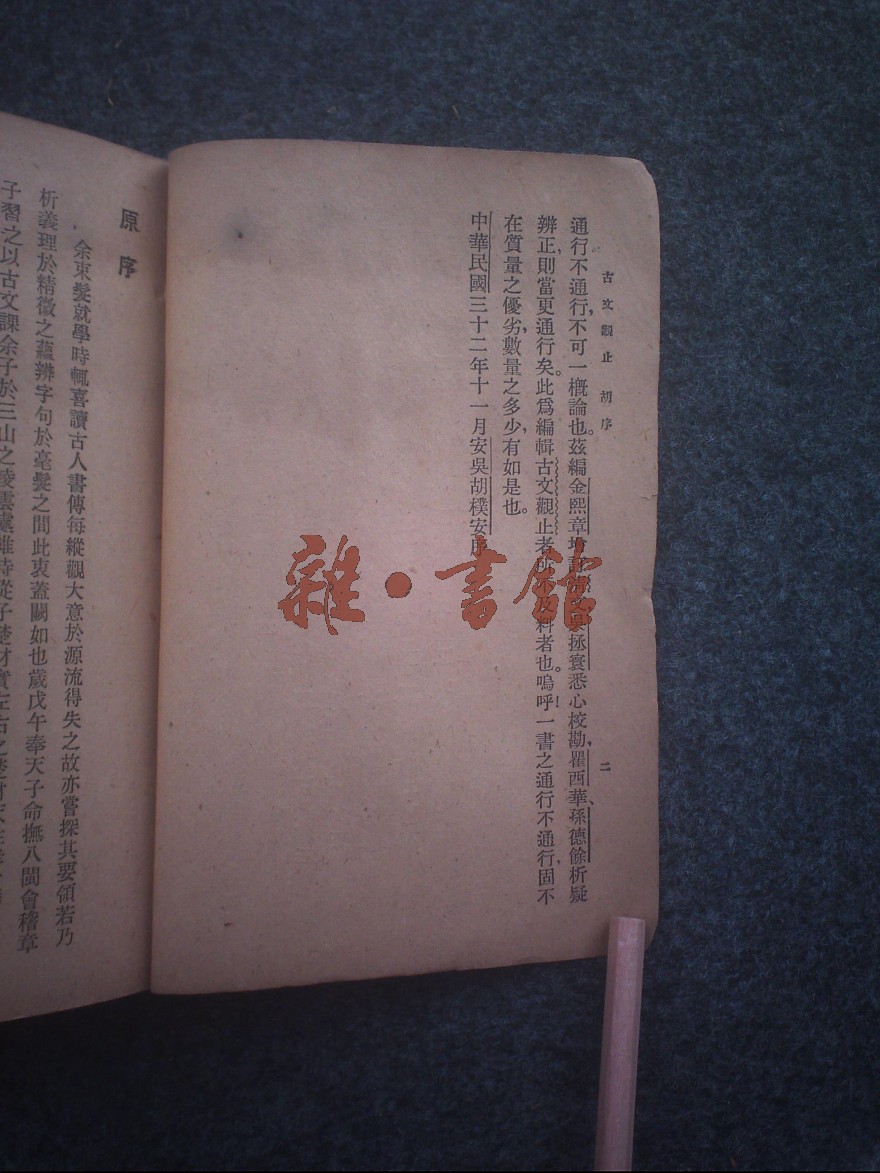 古文觀止 胡序
二
通行不通行，不可一概論也。茲編金熙章增訂拯寰悉心校勘，瞿西華、孫德餘析疑
辨正，則當更通行矣。此爲編輯古文觀止者所不及料者也。嗚呼！一書之通行不通行，固不
在質量之優劣，數量之多少，有如是也。
中華民國三十二年十一月安吳胡樸安序
原序
余束髮就學時輒喜讀古人書傳每縱觀大意於源流得失之故亦嘗探其要領若乃
析義理於精微之蘊辨字句於毫髮之間此衷蓋闕如也歲戊午奉天子命撫八閩會稽章
子習之以古文課余子於三山之凌雲處維時從子楚材實左右之
雜·書館